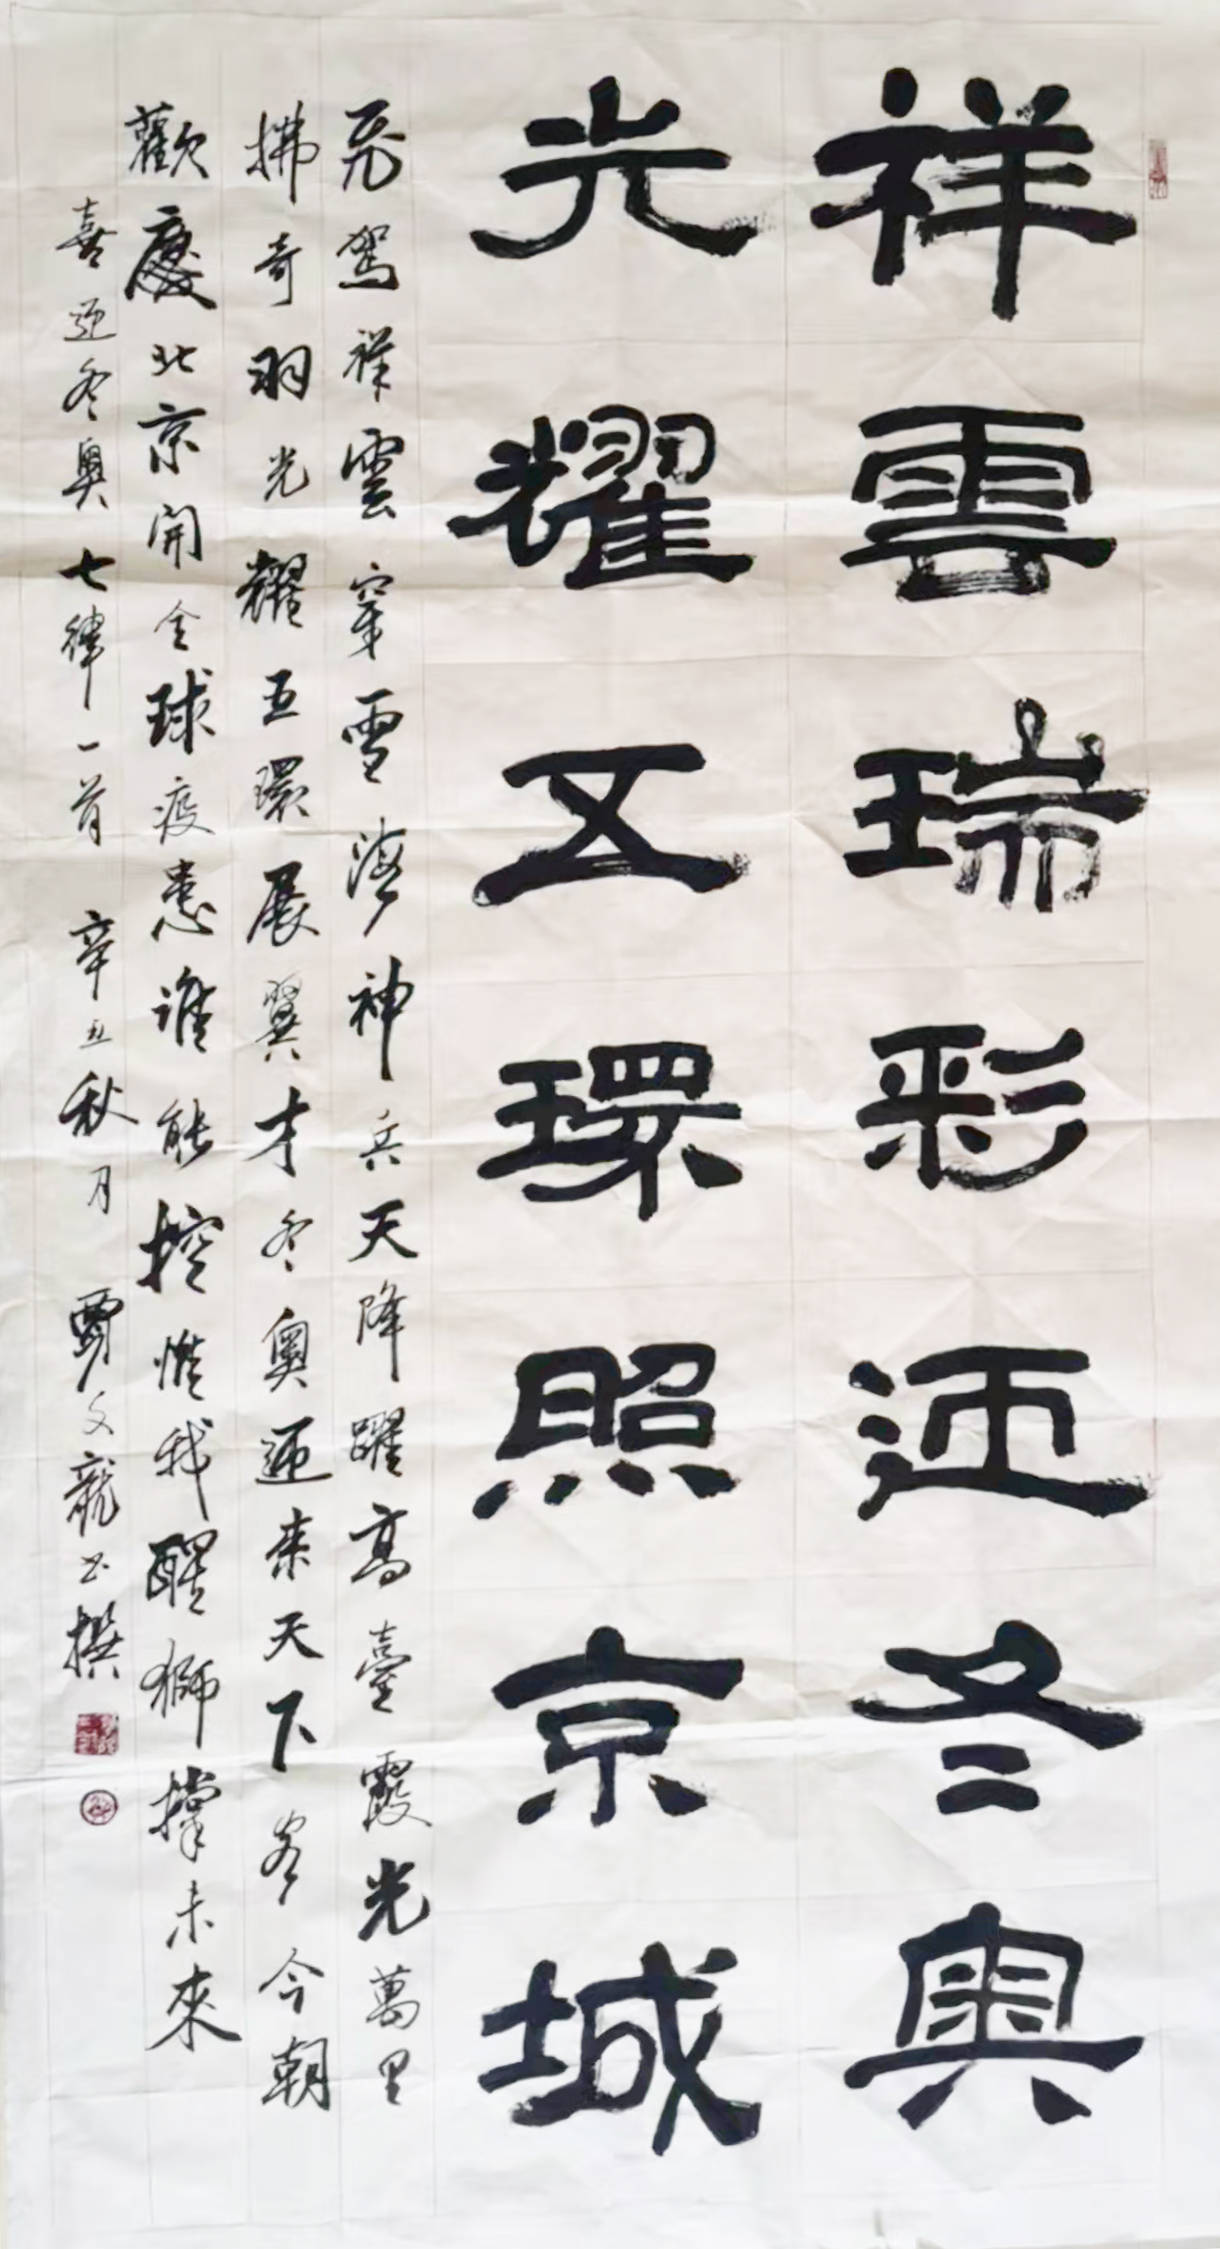 祥雲瑞彩迎冬奧
光耀五環照京城
飛駕祥雲穿雪海神兵天降躍高臺霞光萬里
拂奇羽光耀五環展翼才冬奧迎来天下客今朝
歡慶北京開全球疫患誰能控惟我醒獅撑未來
喜迎冬奧七律一首 辛丑秋月 賈文龍书撰